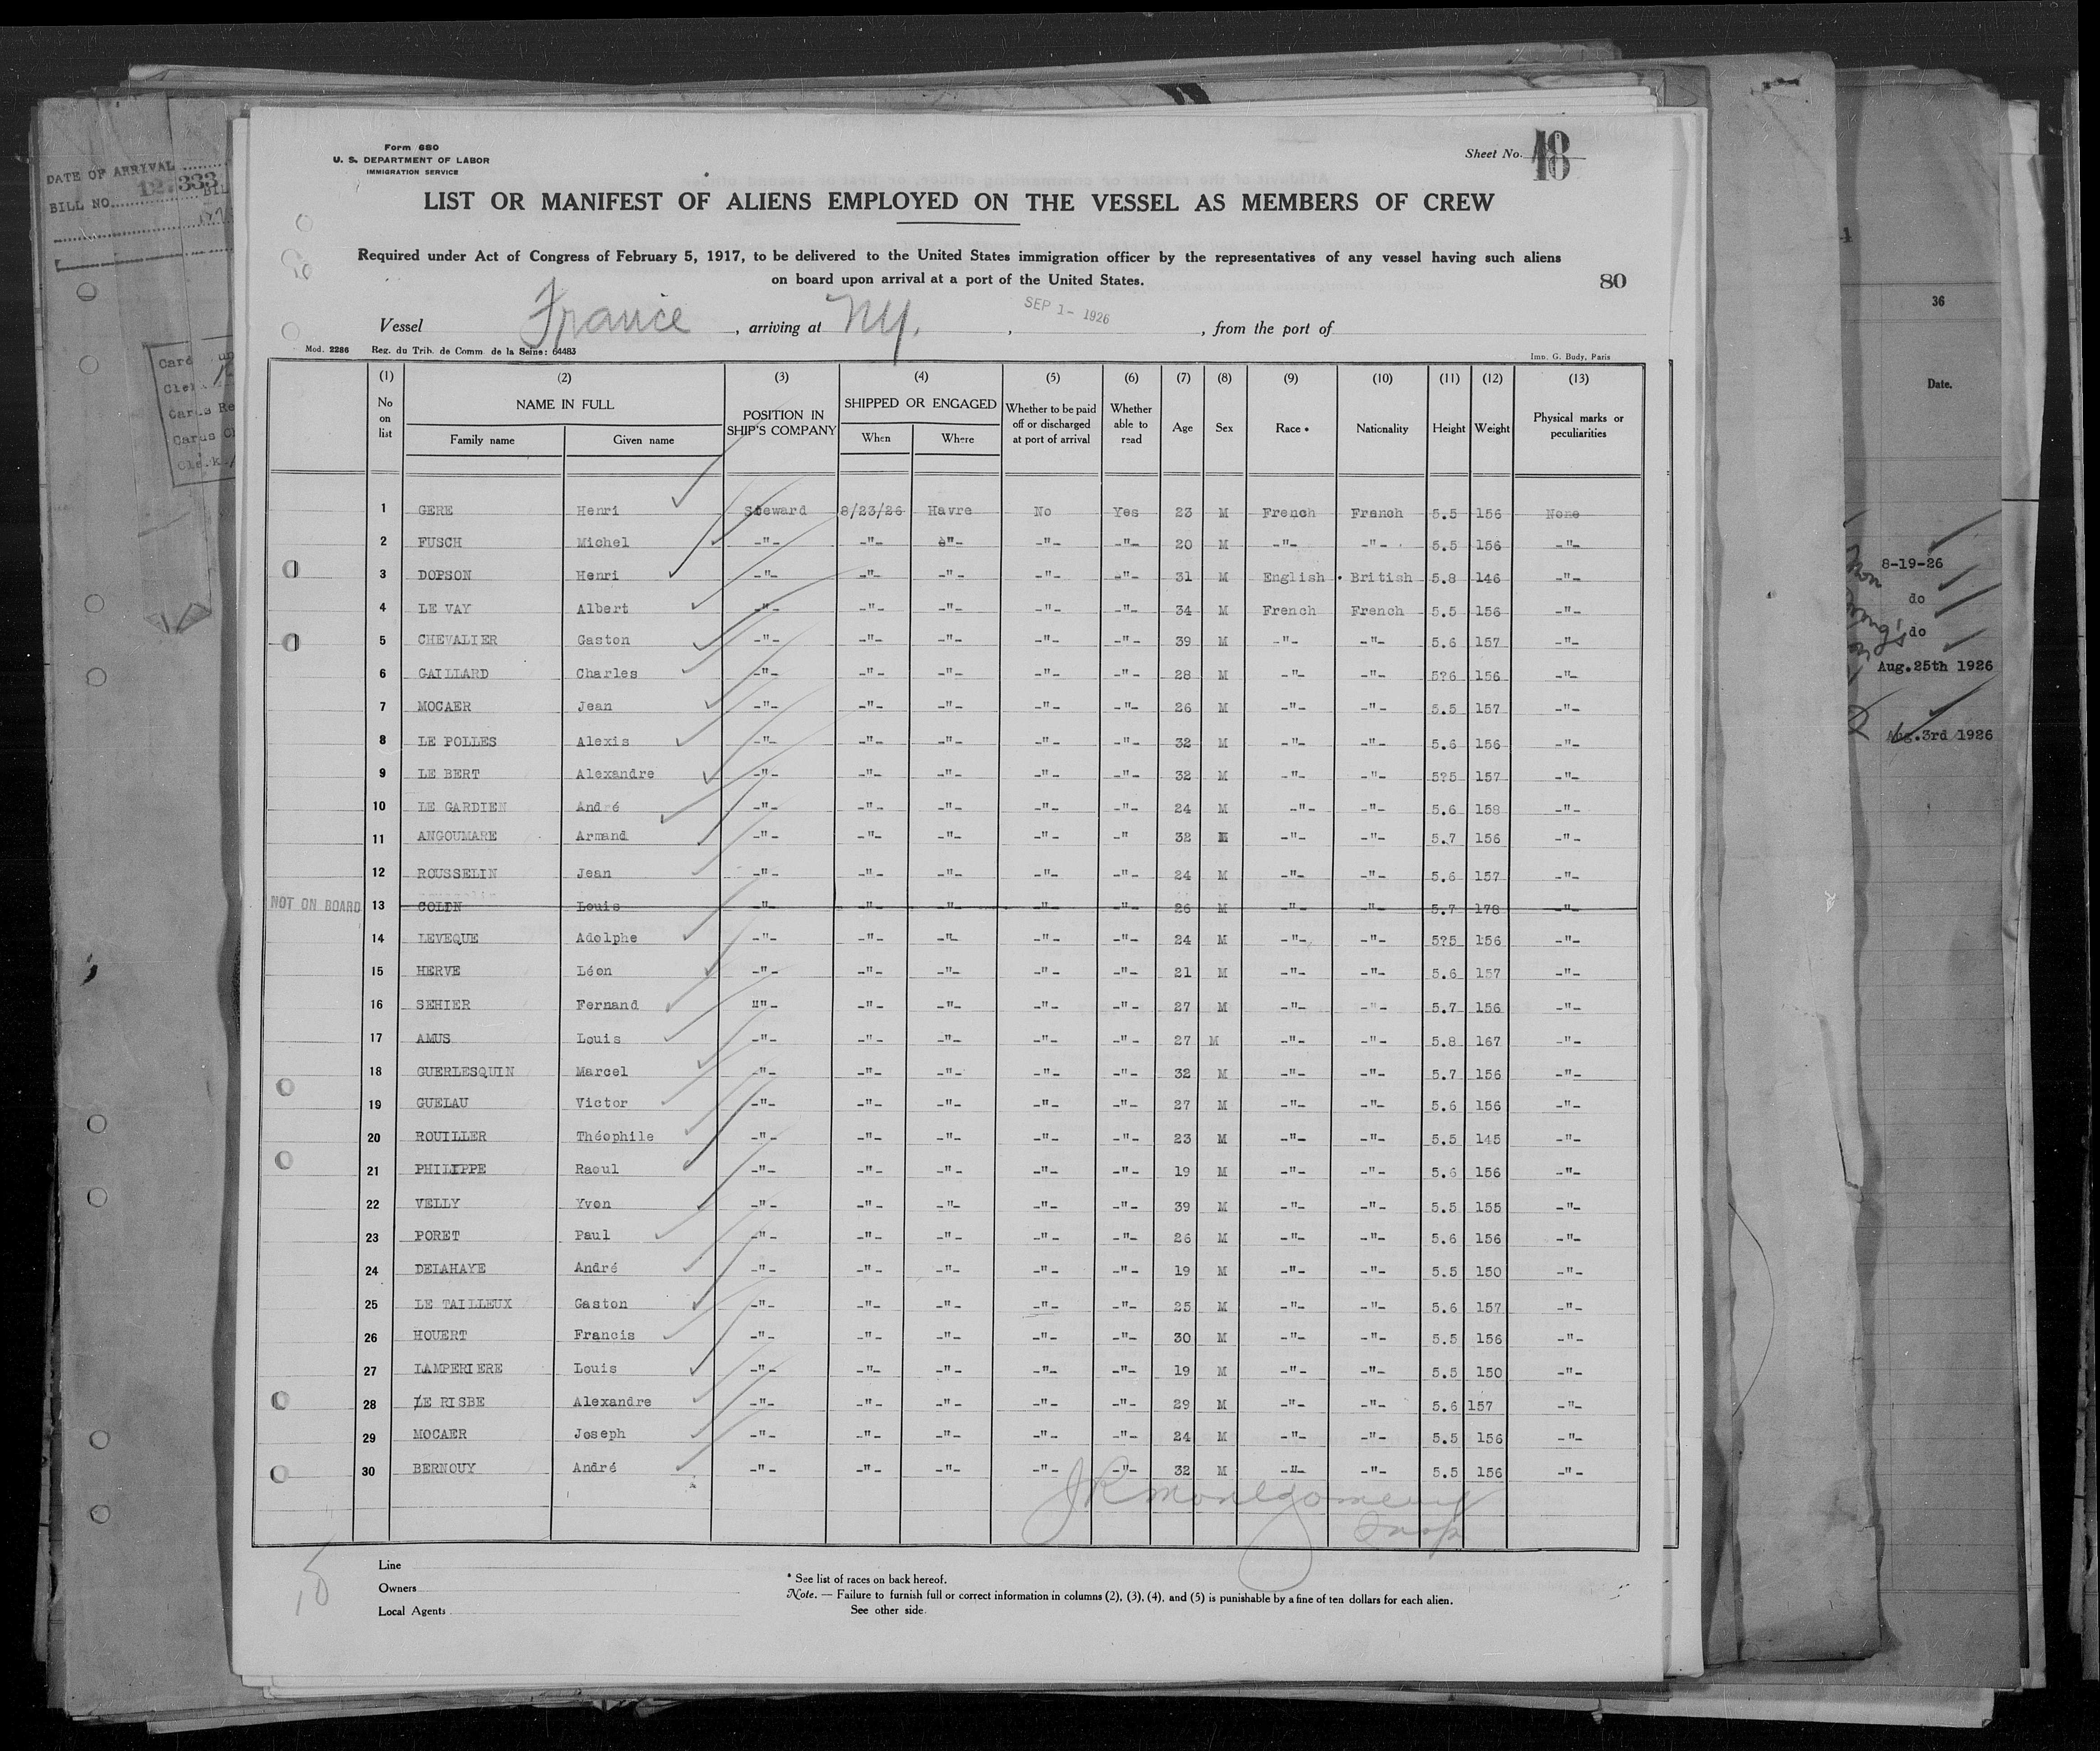 DATE OF ARRIVAL
12.333
BILL NO.
Form 680
U. S. DEPARTMENT OF LABOR
IMMIGRATION SERVICE
Sheet No. 18
LIST OR MANIFEST OF ALIENS EMPLOYED ON THE VESSEL AS MEMBERS OF CREW
Required under Act of Congress of February 5, 1917, to be delivered to the United States immigration officer by the representatives of any vessel having such aliens
on board upon arrival at a port of the United States.
80
Vessel France, arriving at NY., SEP 1- 1926, from the port of
Mod. 2286 Reg. du Trib. de Comm. de la Seine: 64483 Imp. G. Budy, Paris
(1) (2) (3) (4) (5) (6) (7) (8) (9) (10) (11) (12) (13)
No on list NAME IN FULL Family name Given name POSITION IN SHIP'S COMPANY SHIPPED OR ENGAGED When Where Whether to be paid off or discharged at port of arrival Whether able to read Age Sex Race * Nationality Height Weight Physical marks or peculiarities
1 GERE Henri Steward 8/23/26 Havre No Yes 23 M French Franch 5.5 156 None
2 FUSCH Michel -"- -"- -"- -"- -"- 20 M -"- -"- 5.5 156 -"-
3 DOPSON Henri -"- -"- -"- -"- -"- 31 M English British 5.8 146 -"-
4 LE VAY Albert -"- -"- -"- -"- -"- 34 M French French 5.5 156 -"-
5 CHEVALIER Gaston -"- -"- -"- -"- -"- 39 M -"- -"- 5.6 157 -"-
6 GAILLARD Charles -"- -"- -"- -"- -"- 28 M -"- -"- 5?6 156 -"-
7 MOCAER Jean -"- -"- -"- -"- -"- 26 M -"- -"- 5.5 157 -"-
8 LE POLLES Alexis -"- -"- -"- -"- -"- 32 M -"- -"- 5.6 156 -"-
9 LE BERT Alexandre -"- -"- -"- -"- -"- 32 M -"- -"- 5?5 157 -"-
10 LE GARDIEN André -"- -"- -"- -"- -"- 24 M -"- -"- 5.6 158 -"-
11 ANGOUMARE Armand -"- -"- -"- -"- -" 32 M -"- -"- 5.7 156 -"-
12 ROUSSELIN Jean -"- -"- -"- -"- -"- 24 M -"- -"- 5.6 157 -"-
NOT ON BOARD 13 COLIN Louis -"- -"- -"- -"- -"- 26 M -"- -"- 5.7 178 -"-
14 LEVEQUE Adolphe -"- -"- -"- -"- -"- 24 M -"- -"- 5?5 156 -"-
15 HERVE Léon -"- -"- -"- -"- -"- 21 M -"- -"- 5.6 157 -"-
16 SEHIER Fernand ""- -"- -"- -"- -"- 27 M -"- -"- 5.7 156 -"-
17 AMUS Louis -"- -"- -"- -"- -"- 27 M -"- -"- 5.8 167 -"-
18 GUERLESQUIN Marcel -"- -"- -"- -"- -"- 32 M -"- -"- 5.7 156 -"-
19 GUELAU Victor -"- -"- -"- -"- -"- 27 M -"- -"- 5.6 156 -"-
20 ROUILLER Théophile -"- -"- -"- -"- -"- 23 M -"- -"- 5.5 145 -"-
21 PHILIPPE Raoul -"- -"- -"- -"- -"- 19 M -"- -"- 5.6 156 -"-
22 VELLY Yvon -"- -"- -"- -"- -"- 39 M -"- -"- 5.5 155 -"-
23 PORET Paul -"- -"- -"- -"- -"- 26 M -"- -"- 5.6 156 -"-
24 DELAHAYE André -"- -"- -"- -"- -"- 19 M -"- -"- 5.5 150 -"-
25 LE TAILLEUX Gaston -"- -"- -"- -"- -"- 25 M -"- -"- 5.6 157 -"-
26 HOUERT Francis -"- -"- -"- -"- -"- 30 M -"- -"- 5.5 156 -"-
27 LAMPERIERE Louis -"- -"- -"- -"- -"- 19 M -"- -"- 5.5 150 -"-
28 LE RISBE Alexandre -"- -"- -"- -"- -"- 29 M -"- -"- 5.6 157 -"-
29 MOCAER Joseph -"- -"- -"- -"- -"- 24 M -"- -"- 5.5 156 -"-
30 BERNOUY André -"- -"- -"- -"- -"- 32 M -"- -"- 5.5 156 -"-
JR Montgomery
Insp
Line
Owners
Local Agents
* See list of races on back hereof.
Note. — Failure to furnish full or correct information in columns (2), (3), (4), and (5) is punishable by a fine of ten dollars for each alien.
See other side.
36
Date.
8-19-26
do
do
Aug.25th 1926
Aug.3rd 1926